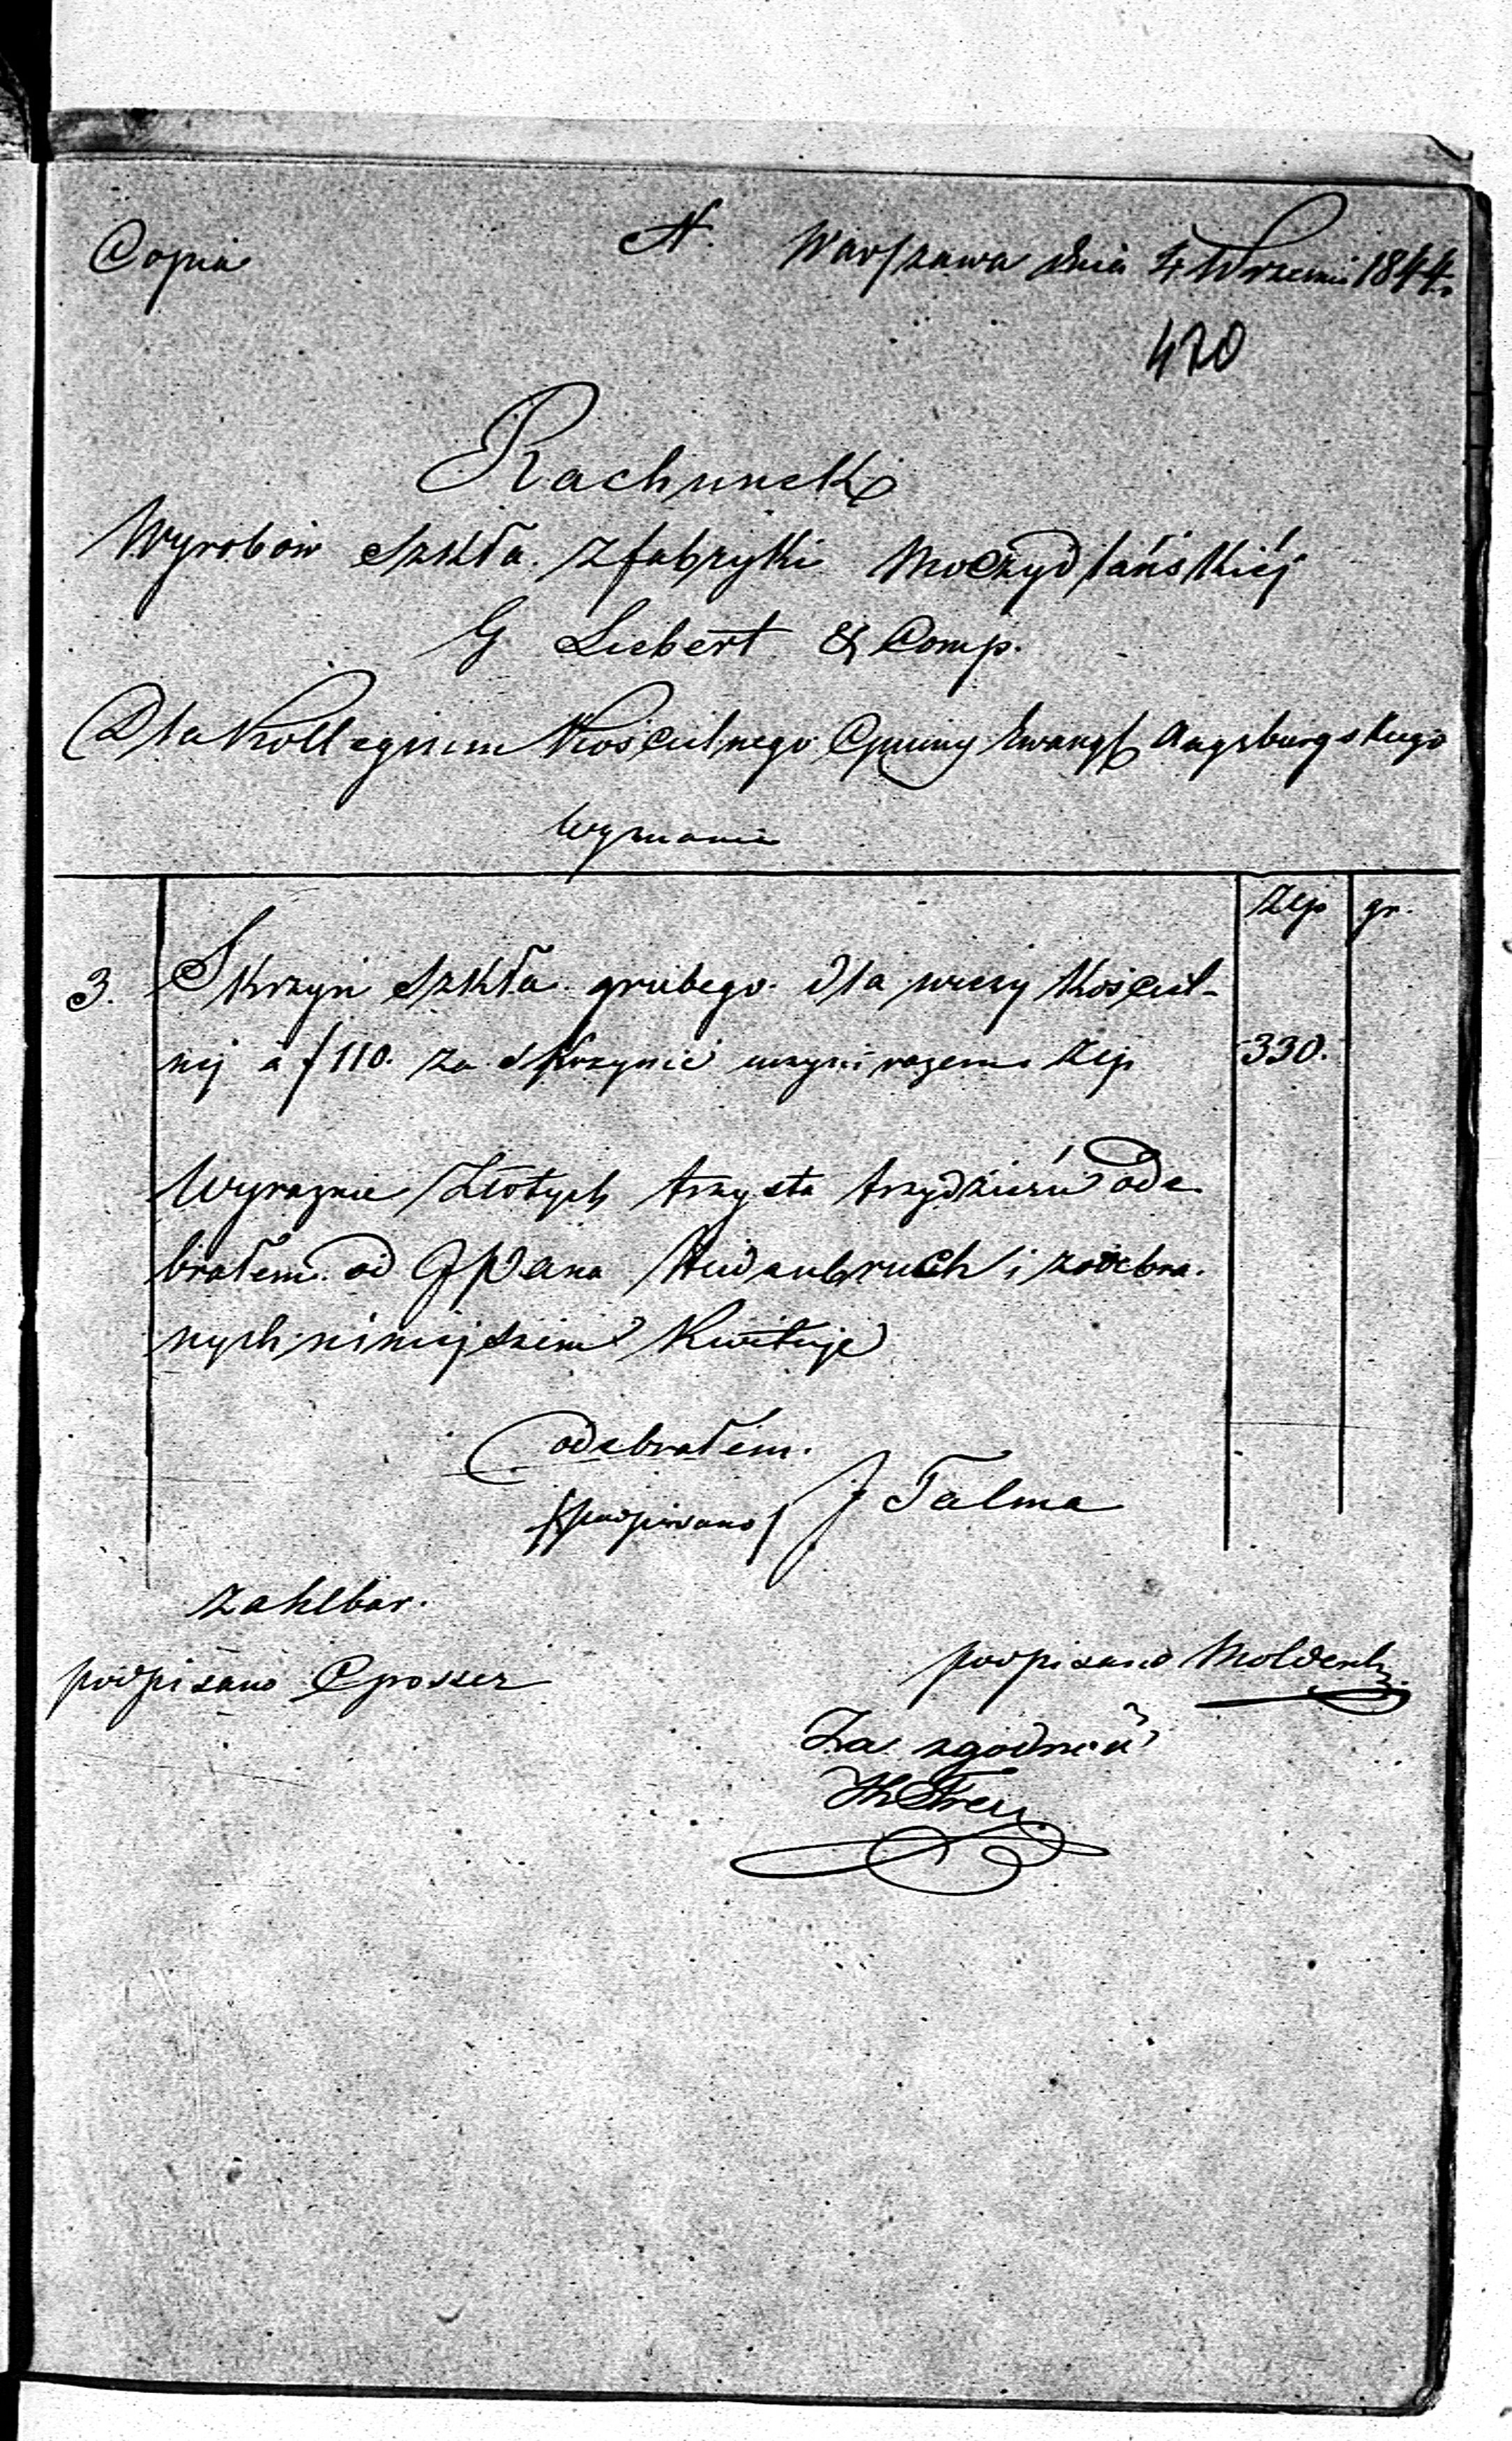 Copia N. Warszawa dnia 4 Wrzesnia 1844.
420
Rachunek
Wyrobów Szkła z fabryki Moczydlańskiéj
G Liebert & Comp.
Dla Kollegium Kościelnego Gminy Ewangl Augsburgskiego
Wyznania
Złp gr.
3. Skrzyń Szkła grubego dla wieży Kościel-
nej a f 110. za skrzynie czyni razem Złp 330.
Wyraznie Złotych trzysta trzydzieści ode
brałem od JPana Heidenbruch i z odebra-
nych niniejszem Kwituje
odebrałem.
/podpisano/ J Talma
zahlbar.
podpisano Grosser podpisano Moldenh.
Za zgodność